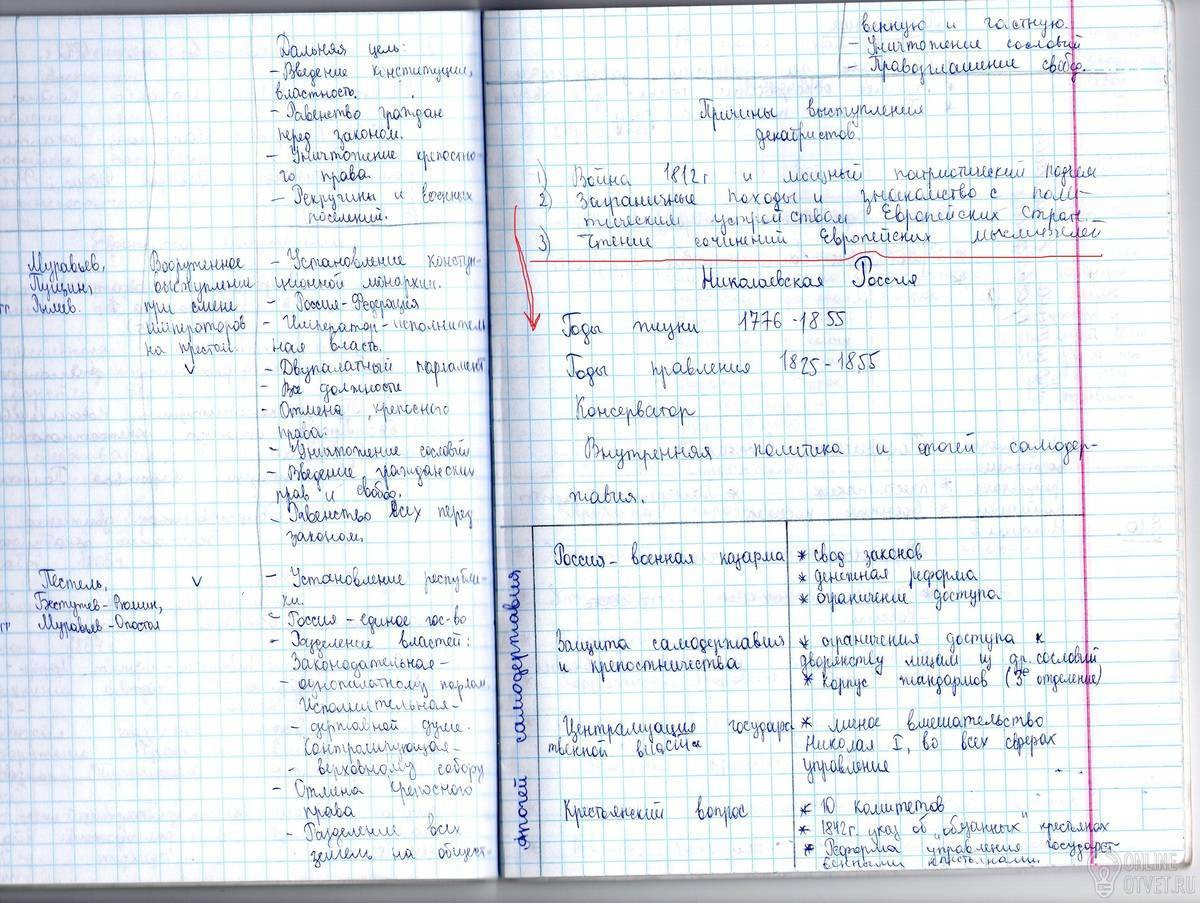 Дальняя цель:
- Введение конституции,
властность.
- Равенство граждан
перед законом.
- Уничтожение крепостно-
го права.
- Рекрутчины и военных
поселений.
Муравьев,
Пущин,
Рылеев.
Вооруженное
выступление
при смене
императоров
на престол.
- Установление констун-
ционной монархии.
- Россия-Федерация
- Император-исполнитель
ная власть.
- Двупалатный парламент
- Все должности
- Отмена крепосного
права.
- Уничтожение сословий
- Введение гражданских
прав и свобод.
- Равенство всех перед
законом.
Пестель,
Бестужев-Рюмин,
Муравьев-Опостол
- Установление республи-
ки.
- Россия-единое гос-во
- Разделение властей:
Законодательная-
- однопалатному парлам
Исполнительная-
- державной думе.
Контралирующая-
- верховному собору
- Отмена крепосного
права
- Разделение всех
земель на общест-
венную и частную.
- Уничтожение сословий
- Правозглашение свобод.
Причины выступления
декабристов.
1) Война 1812г и мощный патриотический подъем
2) Заграничные походы и знакомство с поли-
тическим устройством Европейских стран.
3) Чтение сочинений Европейских мыслителей
Николаевская Россия
Годы жизни 1776-1855
Годы правления 1825-1855
Консерватор
Внутренняя политика и апогей самодер-
жавия.
Апогей самодержавия
Россия-военная казарма
* свод законов
* денежная реформа
* ограничение доступа
Защита самодержавия
и крепостничества
* ограничения доступа к
дворянству лицам из др. сословий
* корпус жандармов (3е отделение)
Централизация государс
твенной власти
* личное вмешательство
Николая I, во всех сферах
управления
Крестьянский вопрос
* 10 комитетов
* 1842г. указ об "обязанных" крестьянах
* Реформа управления государст
венными крестьянами.
ONLINE-
OTVET.RU